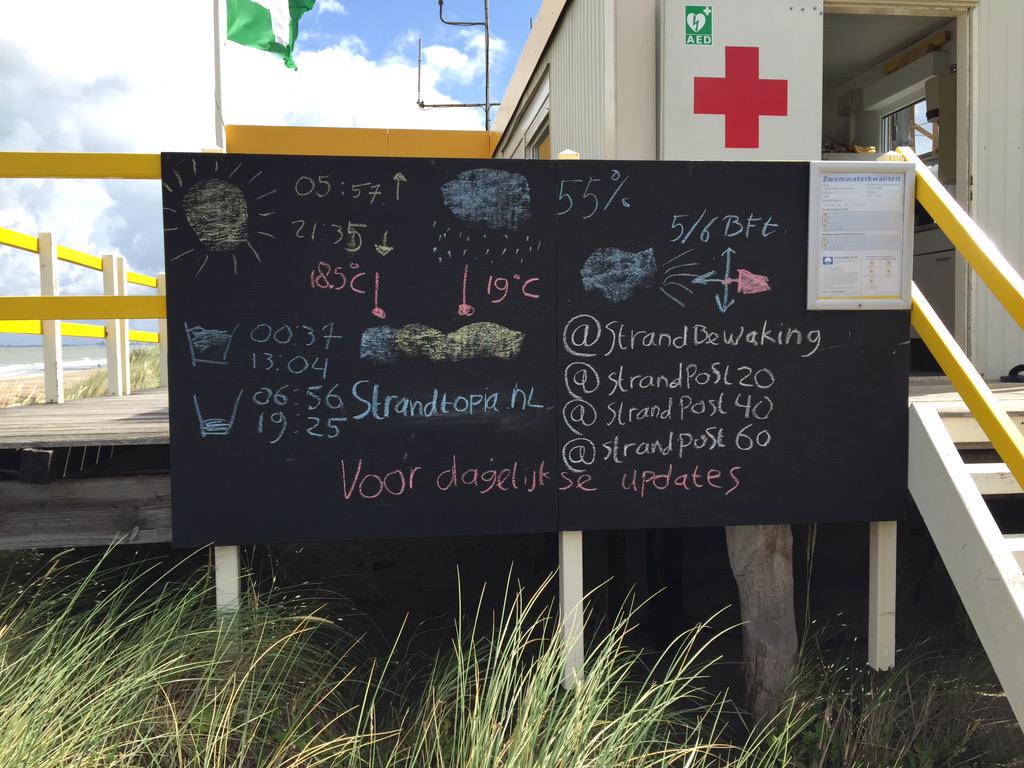 AED
Zwemwaterkwaliteit
05:57
21:35
55%
5/6 BFt
18.5°C
19°C
00:37
13:04
06:56
19:25
Strandtopia.nl
@StrandBewaking
@strandPoSt20
@StrandPost 40
@strandpoSt 60
Voor dagelijkse updates